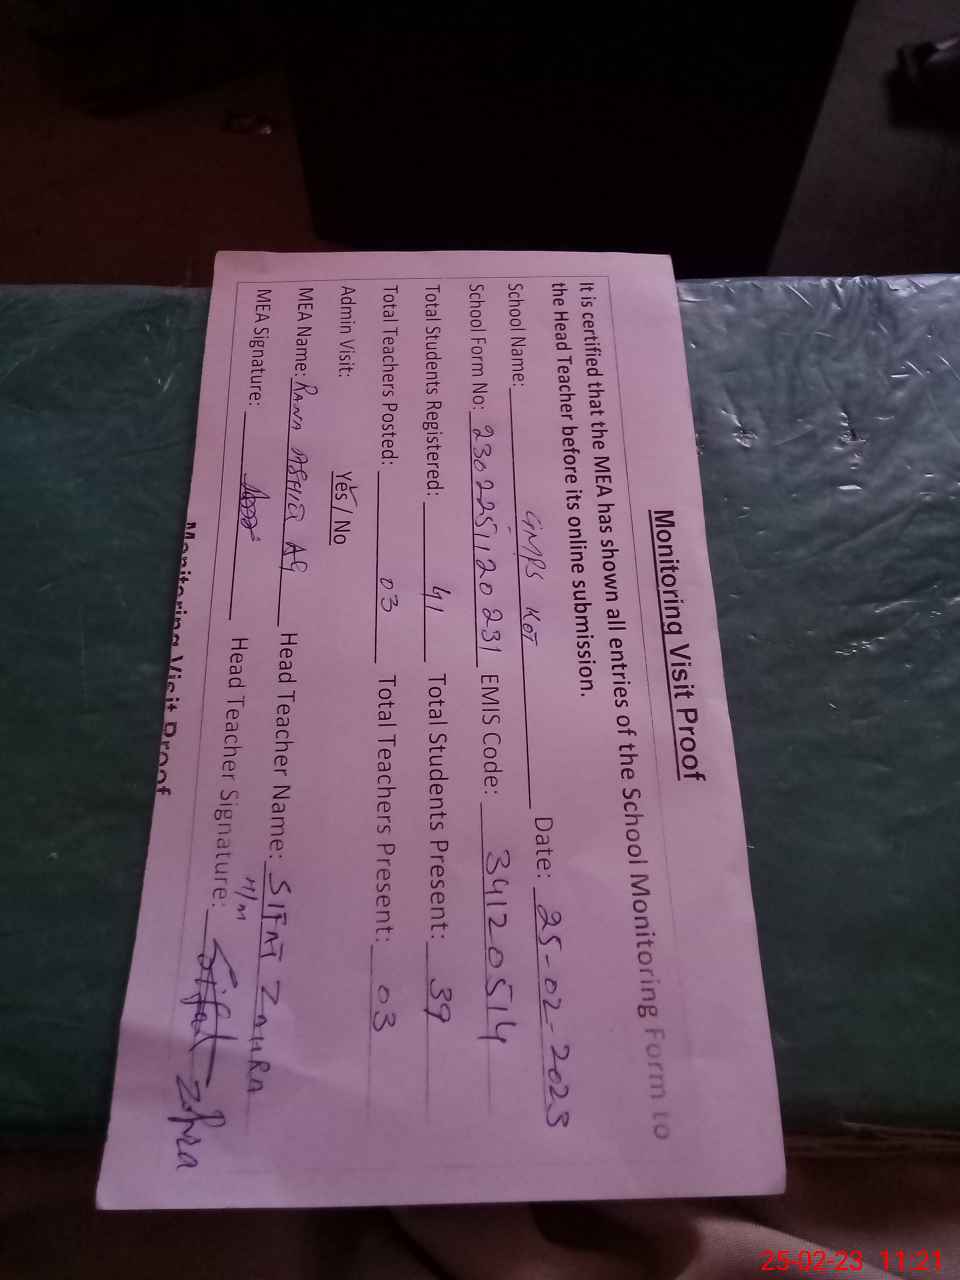 Monitoring Visit Proof
It is certified that the MEA has shown all entries of the School Monitoring Form to
the Head Teacher before its online submission.
School Name: GMPS KOT Date: 25-02-2023
School Form No: 2302251120231 EMIS Code: 34120514
Total Students Registered: 41 Total Students Present: 39
Total Teachers Posted: 03 Total Teachers Present: 03
Admin Visit: Yes / No
MEA Name: RANA Head Teacher Name: SIFAT ZAHRA
H/M
MEA Signature: Head Teacher Signature: Sifat Zahra
Monitoring Visit Proof
25-02-23 11:21